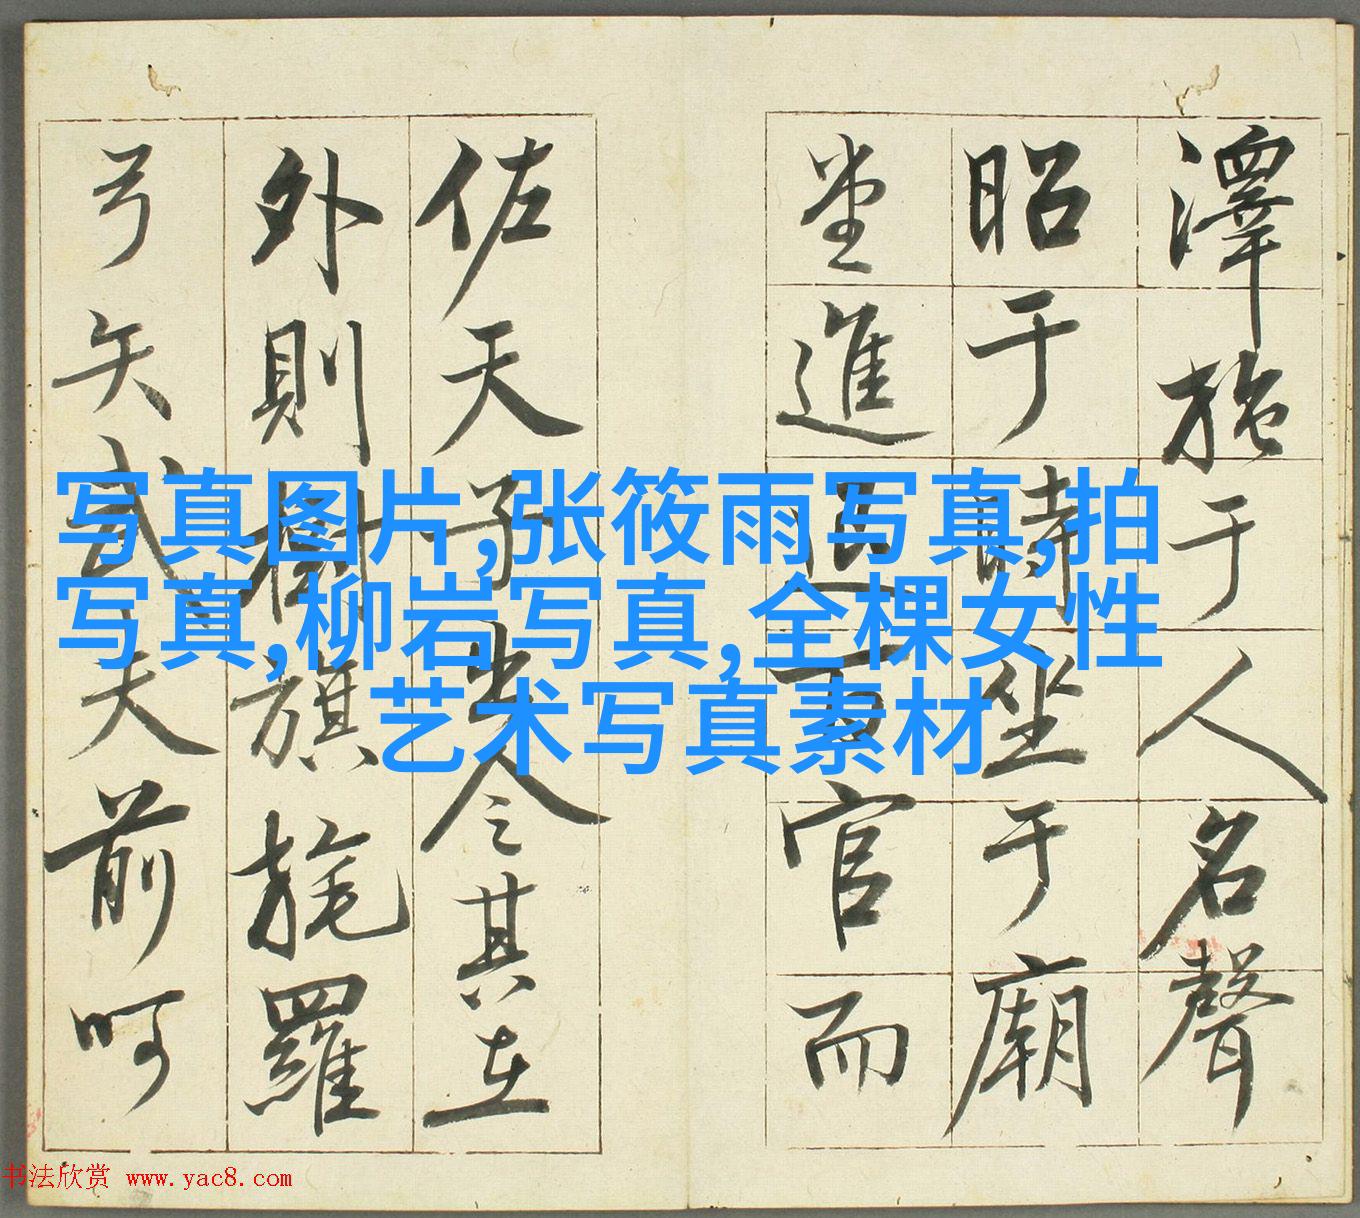 澤施于人名聲
昭于時坐于廟
堂進退百官而
佐天子出令其在
外則樹旗旄羅
弓矢武夫前呵
写真图片,张筱雨写真,拍
写真,柳岩写真,全棵女性
艺术写真素材
书法欣赏 www.yac8.com